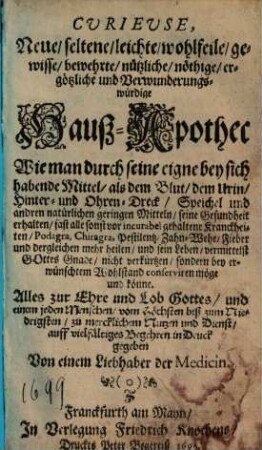 CVRIEUSE,
Neue/ seltene/ leichte/ wohlfeile/ ge-
wisse/ bewehrte/ nützliche/ nöthige/ er-
götzliche und Verwunderungs-
würdige
Hauß-Apothec
Wie man durch seine eigne bey sich
habende Mittel/ als dem Blut/ dem Urin/
Hinter- und Ohren-Dreck/ Speichel und
andren natürlichen geringen Mitteln/ seine Gesundheit
erhalten/ fast alle sonst vor incurabel gehaltene Kranckhei-
ten/ Podagra, Chiragra, Pestilentz/ Zahn-Wehe/ Fieber
und dergleichen mehr heilen/ und sein Leben/ vermittelst
GOttes Gnade/ nicht verkürtzen/ sondern bey er-
wünschtem Wohlstand conserviren möge
und könne.
Alles zur Ehre und Lob Gottes/ und
einem jeden Menschen/ vom Höchsten biß zum Nie-
drigsten/ zu mercklichem Nutzen und Dienst/
auff vielfältiges Begehren in Druck
gegeben
Von einem Liebhaber der Medicin.
1699
Franckfurth am Mayn/
In Verlegung Friedrich Knochens/
Druckts Peter Begereiß